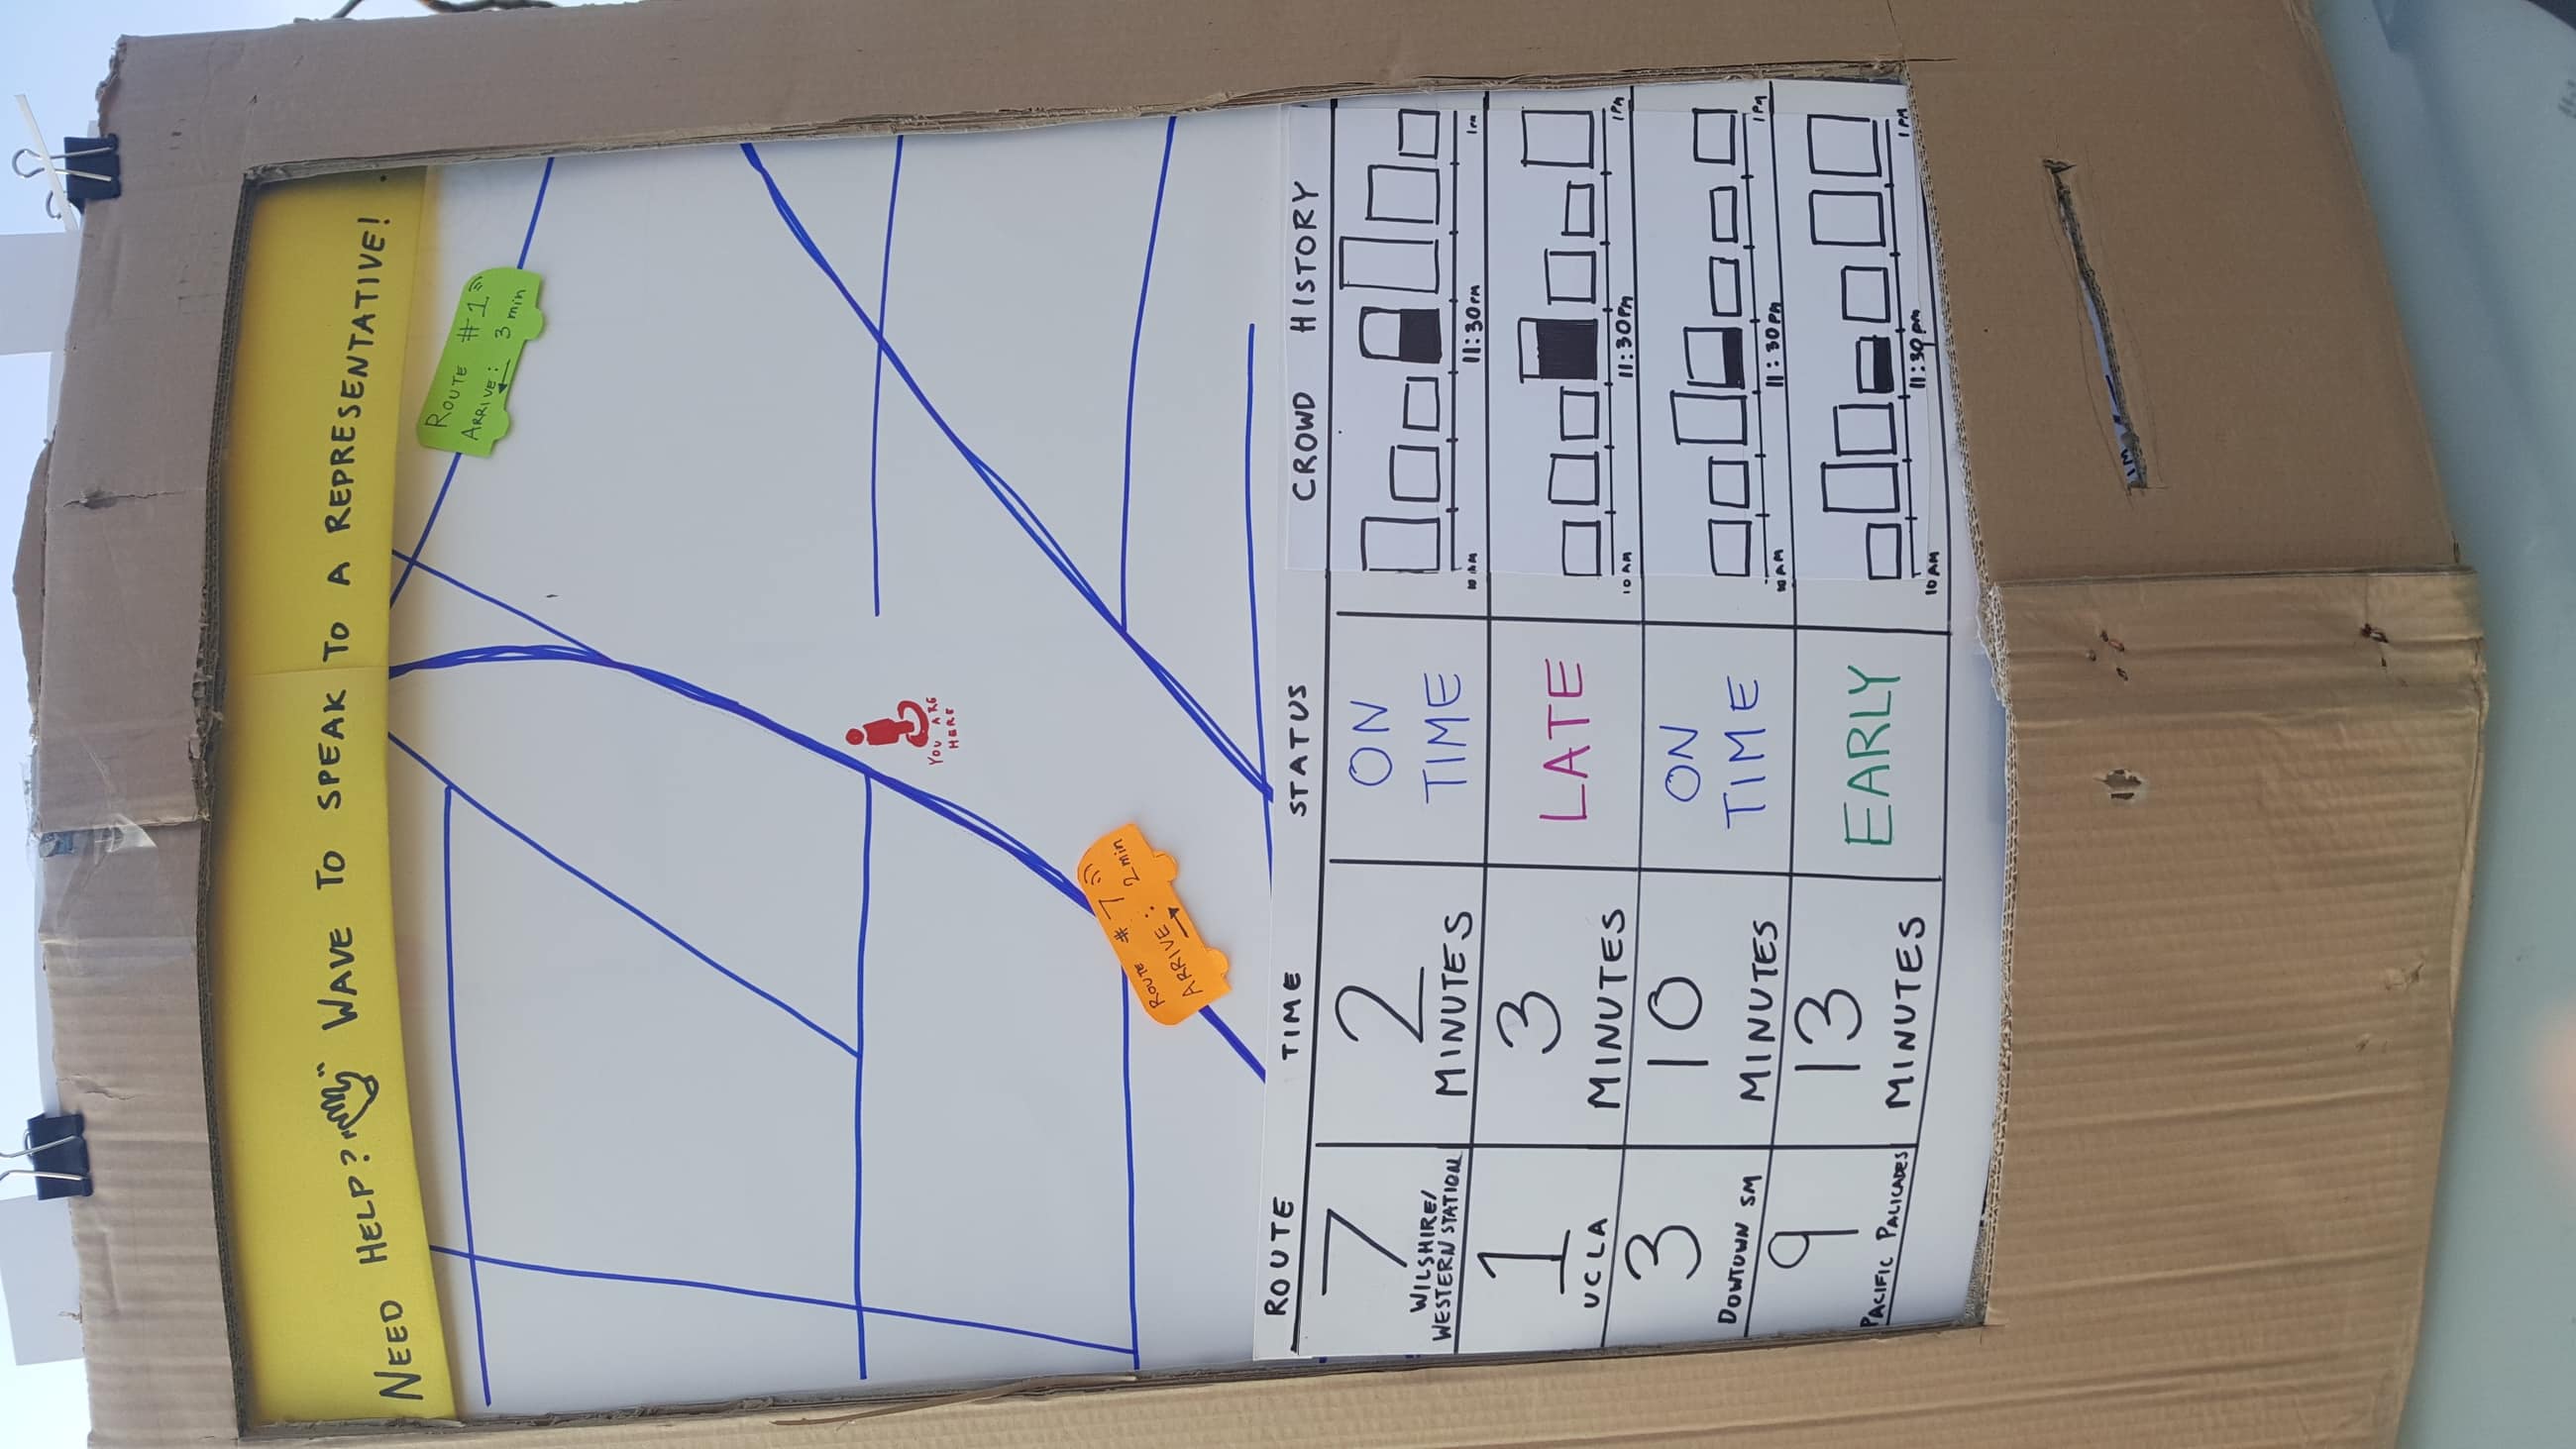 NEED HELP? WAVE TO SPEAK TO A REPRESENTATIVE!
ROUTE #1
ARRIVE: 3 min
YOU ARE
HERE
ROUTE #7
ARRIVE: 2 min
ROUTE TIME STATUS CROWD HISTORY
7
WILSHIRE/
WESTERN STATION
2
MINUTES
ON
TIME
10 AM 11:30PM 1PM
1
UCLA
3
MINUTES
LATE
10 AM 11:30PM 1PM
3
DOWTOWN SM
10
MINUTES
ON
TIME
10 AM 11:30PM 1PM
9
PACIFIC PALICADES
13
MINUTES
EARLY
10 AM 11:30pm 1PM